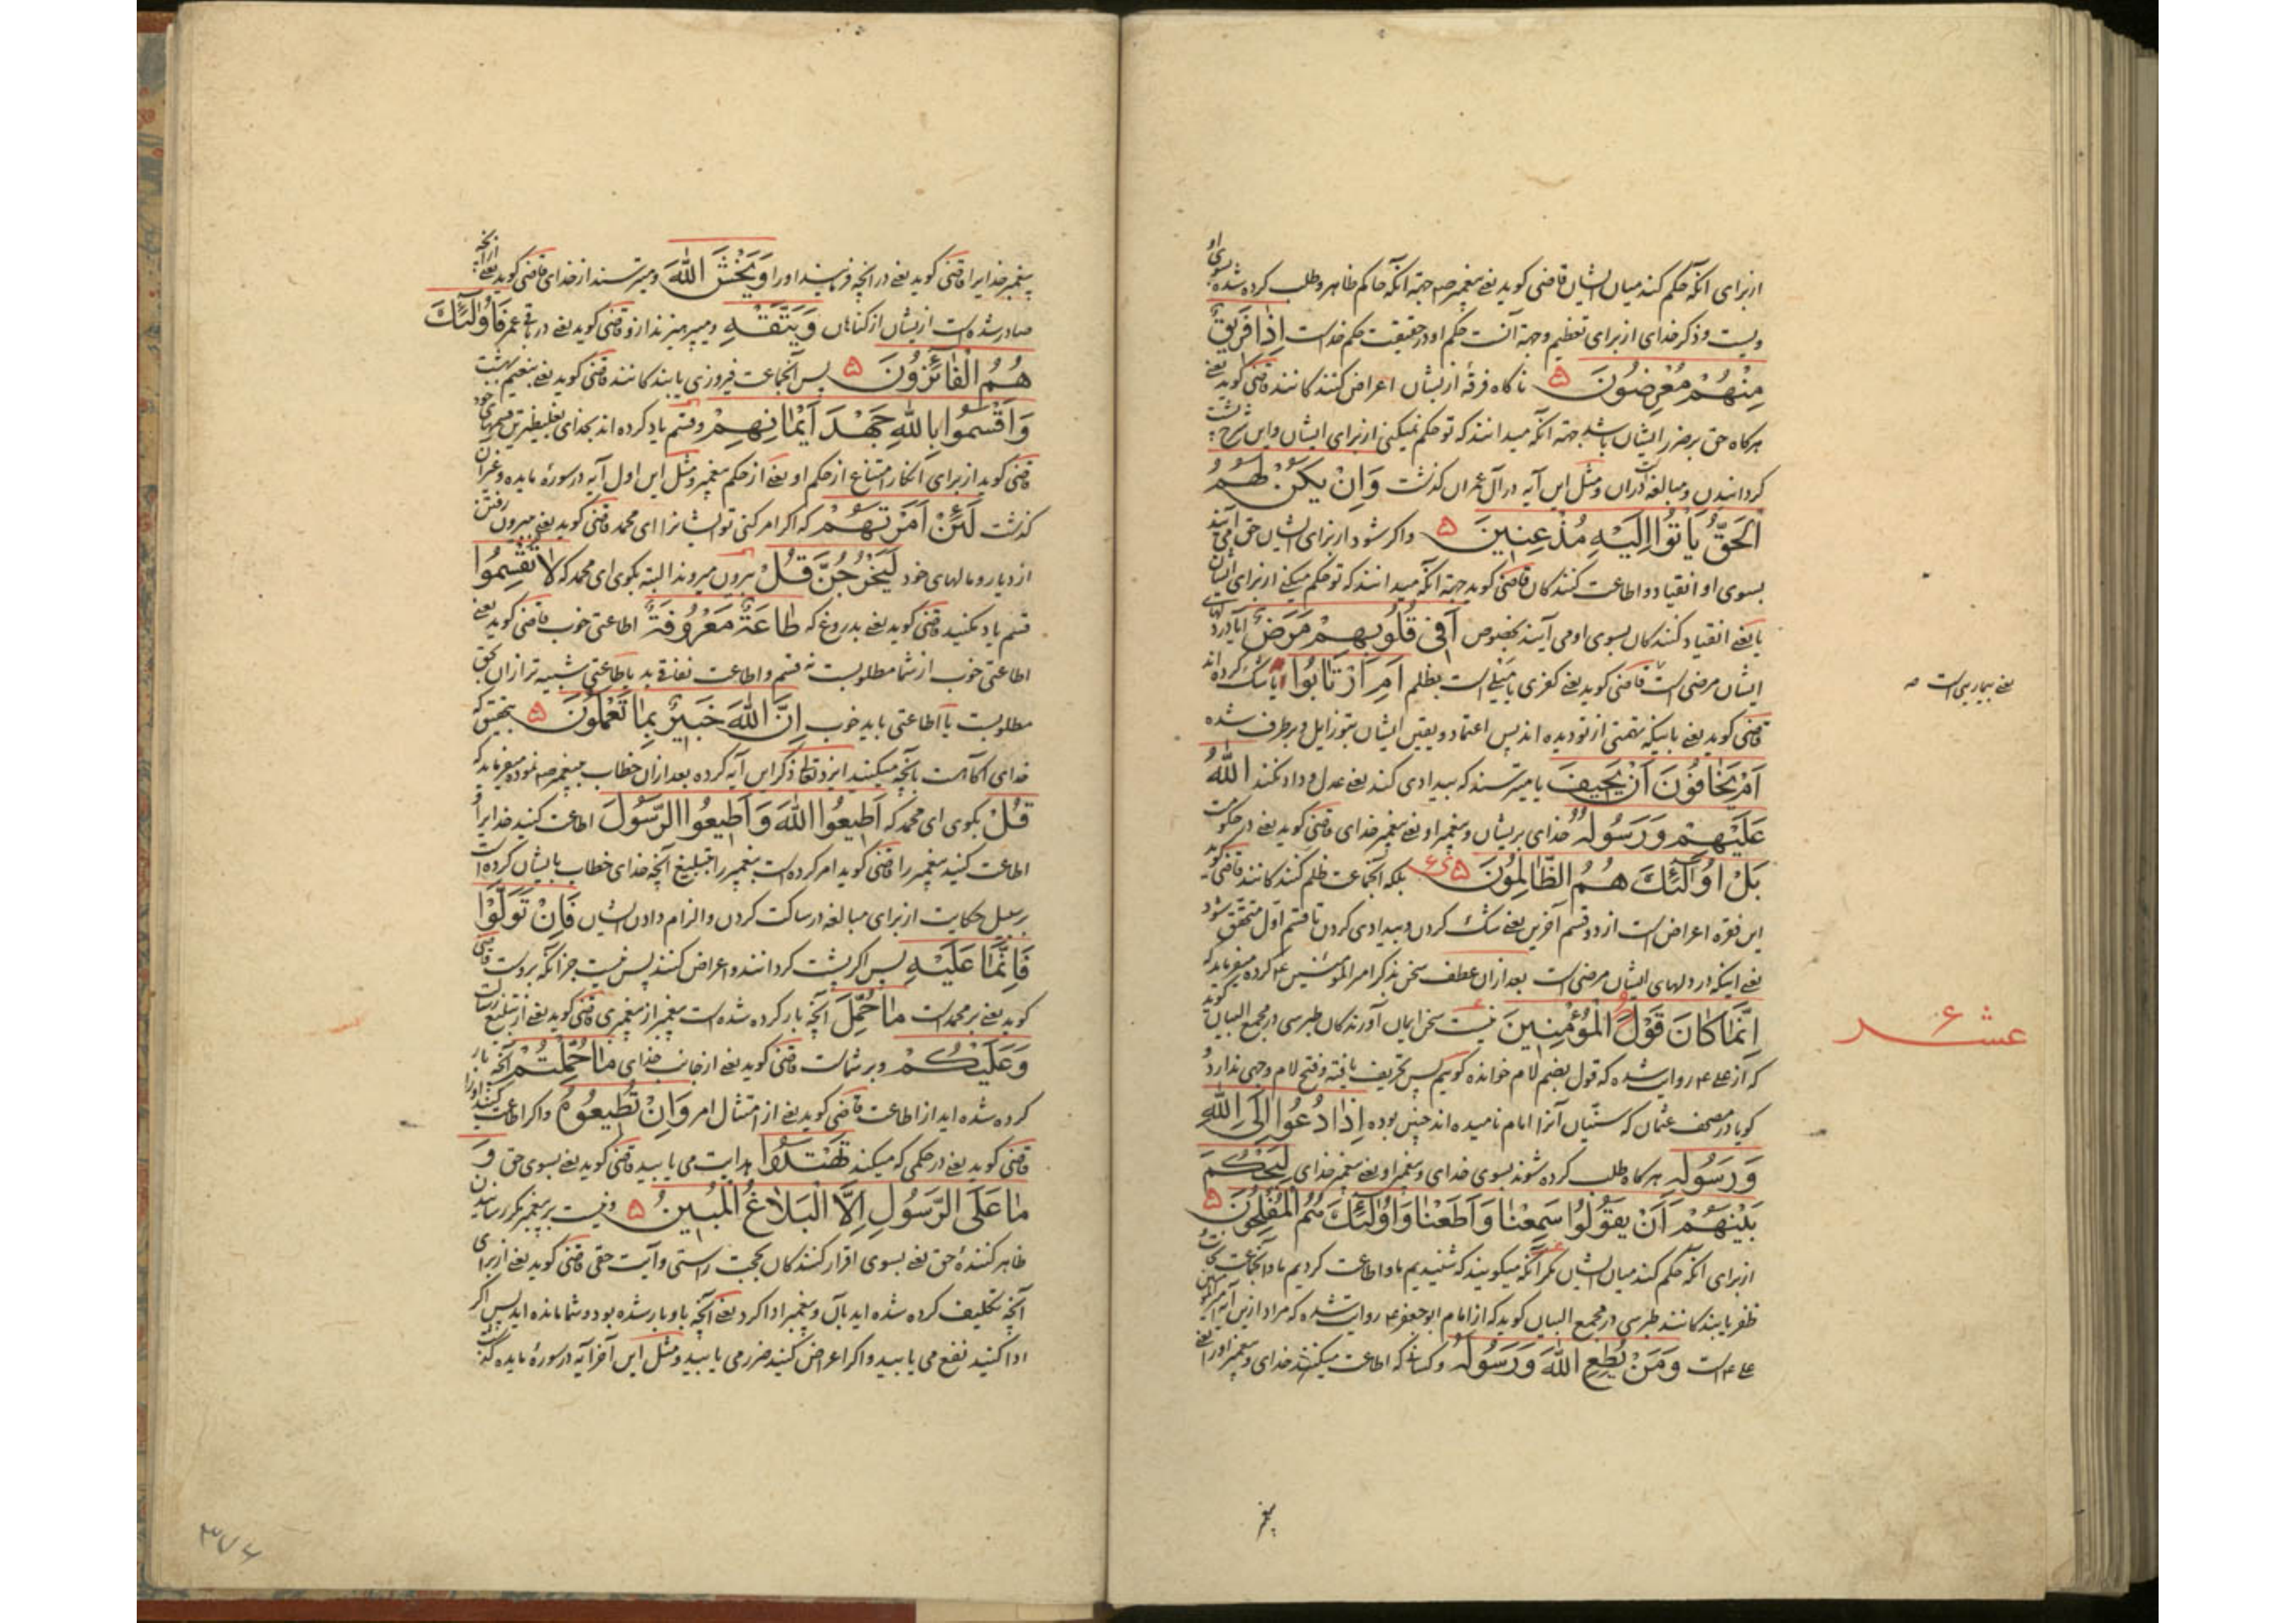 ازبرای آنکه حکم کند میان ایشان قاضی کوید یعنی پیغمبر ص جهة آنکه حاکم ظاهر و طلب کرده شده بسوی او
ویست و ذکر خدای از برای تعظیم و جهة آنست حکم او در حقیقت حکم خداست اِذَا فَرِیقٌ
مِنْهُمْ مُعْرِضُونَ ۵ ناکاه فرقهٔ ازیشان اعراض کنندکانند قاضی کوید یعنی
هرکاه حق برضرر ایشان باشد جهة آنکه میدانند که تو حکم نمیکنی ازبرای ایشان واین شرح
کردانیدن ومبالغه دران ومثل این آیه در آل عمران کذشت وَاِنْ یَکُنْ لَهُمُ
اَلْحَقُّ یَأْتُوا اِلَیْهِ مُذْعِنِینَ ۵ واکر شود ازبرای ایشان حق می آیند
بسوی او انقیاد و اطاعت کنندکان قاضی کوید جهة آنکه میدانند که تو حکم میکنی ازبرای ایشان
انقیاد کنندکان بسوی او می آیند بخصوص اَفِی قُلُوبِهِمْ مَرَضٌ آیا در دلهای
ایشان مرضی است قاضی کوید یعنی کفری یا میلی است بظلم اَمِ ارْتَابُوا یا شک کرده اند
یعنی بیماریی است
قاضی کوید یعنی باینکه تهمتی از تو دیده اند پس اعتماد ویقین ایشان بتو زایل و برطرف شده
اَمْ یَخَافُونَ اَنْ یَحِیفَ یا میترسند که بیدادی کند یعنی عدل و داد نکند اللّٰهُ
عَلَیْهِمْ وَرَسُولُهُ خدای بریشان و پیغمبر او یعنی پیغمبر خدای قاضی کوید یعنی در حکومت
بَلْ اُولٰٓئِکَ هُمُ الظَّالِمُونَ ۵ بلکه آنجماعت ظلم کنندکانند قاضی کوید
این فقره اعراض است از دو قسم آخرین یعنی شک کردن و بیدادی کردن تا قسم اول متحقق شود
یعنی اینکه در دلهای ایشان مرضی است بعد ازان عطف سخن بذکر امیر المؤمنین ع کرده میفرماید که
اِنَّمَا کَانَ قَوْلُ الْمُؤْمِنِینَ نیست سخن ایمان آورندکان طبرسی در مجمع البیان کوید
عشر
که از علی ع روایت شده که قول بضم لام خوانده کوییم پس تحریف یافته وفتح لام وجهی ندارد
کویا در مصحف عثمان که سنّیان آنرا امام نامیده اند چنین بوده اِذَا دُعُوا اِلَی اللّٰهِ
وَرَسُولِهِ هرکاه طلب کرده شوند بسوی خدای و پیغمبر او یعنی پیغمبر خدای لِیَحْکُمَ
بَیْنَهُمْ اَنْ یَقُولُوا سَمِعْنَا وَاَطَعْنَا وَاُولٰٓئِکَ هُمُ الْمُفْلِحُونَ ۵
ازبرای آنکه حکم کند میان ایشان مکر آنکه میکویند که شنیدیم ما و اطاعت کردیم ما و آنجماعت
ظفر یابندکانند طبرسی در مجمع البیان کوید که از امام ابو جعفر ع روایت شده که مراد ازین آیه امیر المؤمنین
علی ع است وَمَنْ یُطِعِ اللّٰهَ وَرَسُولَهُ وکسانی که اطاعت میکنند خدای و پیغمبر اورا یعنی
پیغمبر
پیغمبر خدایرا قاضی کوید یعنی در آنچه فرمایند اورا وَیَخْشَ اللّٰهَ ومیترسند از خدای قاضی کوید یعنی از آنچه
صادر شده است ازیشان از کناهان وَیَتَّقْهِ ومیپرهیزند ازو قاضی کوید یعنی در باقی عمر فَاُولٰٓئِکَ
هُمُ الْفَائِزُونَ ۵ پس آنجماعت فیروزی یابندکانند قاضی کوید یعنی بنعیم بهشت
وَاَقْسَمُوا بِاللّٰهِ جَهْدَ اَیْمَانِهِمْ وقسم یاد کرده اند بخدای بغلیظترین قسمهای خود
قاضی کوید ازبرای انکار امتناع از حکم او یعنی از حکم پیغمبر ومثل این اول آیه در سورهٔ مایده وغیران
کذشت لَئِنْ اَمَرْتَهُمْ که اکر امر کنی تو ایشانرا ای محمد قاضی کوید یعنی ببیرون رفتن
از دیار و مالهای خود لَیَخْرُجُنَّ قُلْ بیرون میروند البته بکوی ای محمد که لَا تُقْسِمُوا
قسم یاد نکنید قاضی کوید یعنی بدروغ که طَاعَةٌ مَعْرُوفَةٌ اطاعتی خوب قاضی کوید یعنی
اطاعتی خوب از شما مطلوبست نه قسم و اطاعت نفاق بد یا طاعتی شبیه تر ازان بحق
مطلوبست یا اطاعتی باید خوب اِنَّ اللّٰهَ خَبِیرٌ بِمَا تَعْمَلُونَ ۵ بتحقیق که
خدای آکاه است بانچه میکنید ایزد تعالی ذکر این آیه کرده بعد ازان خطاب بپیغمبر ص نموده میفرماید که
قُلْ بکوی ای محمد که اَطِیعُوا اللّٰهَ وَاَطِیعُوا الرَّسُولَ اطاعت کنید خدایرا و
اطاعت کنید پیغمبر را قاضی کوید امر کرده است پیغمبر را بتبلیغ آنچه خدای خطاب بایشان کرده است
برسبیل حکایت ازبرای مبالغه در ساکت کردن و الزام دادن ایشان فَاِنْ تَوَلَّوْا
فَاِنَّمَا عَلَیْهِ پس اکر پشت کردانند و اعراض کنند پس نیست جز آنکه بروست قاضی
کوید یعنی بر محمد است مَا حُمِّلَ آنچه بار کرده شده است پیغمبر از پیغمبری قاضی کوید یعنی از تبلیغ رسالت
وَعَلَیْکُمْ وبر شماست قاضی کوید یعنی از جانب خدای مَا حُمِّلْتُمْ آنچه بار
کرده شده اید از اطاعت قاضی کوید یعنی از امتثال امر وَاِنْ تُطِیعُوهُ واکر اطاعت کنید اورا
قاضی کوید یعنی در حکمی که میکند تَهْتَدُوا هدایت می یابید قاضی کوید یعنی بسوی حق وَ
مَا عَلَی الرَّسُولِ اِلَّا الْبَلَاغُ الْمُبِینُ ۵ ونیست بر پیغمبر مکر رسانیدن
ظاهر کنندهٔ حق یعنی بسوی اقرار کنندکان بحجت راستی وآیت حقی قاضی کوید یعنی ازبرای
آنچه تکلیف کرده شده اید بآن و پیغمبر ادا کرد یعنی آنچه باو بار شده بود و شما مانده اید پس اکر
ادا کنید نفع می یابید واکر اعراض کنید ضرر می یابید ومثل این آخر آیه در سورهٔ مایده کذشت
۳۷۶